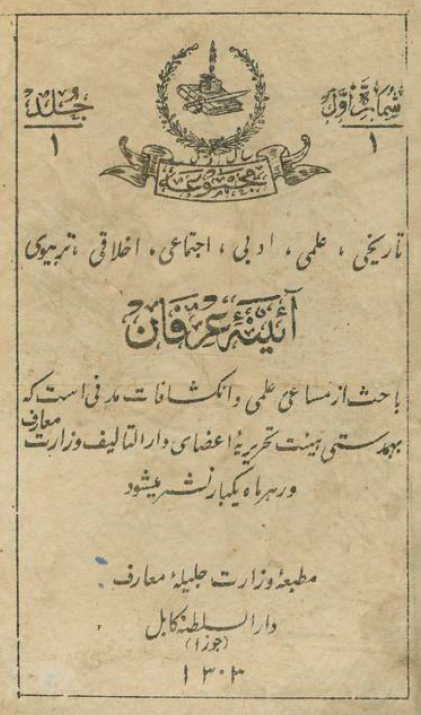 شمارۀ اول
۱
جلد
۱
سال اول
مجموعۀ
تاریخی ، علمی ، ادبی ، اجتماعی ، اخلاقی ، تربیوی
آئینۀ عرفان
باحث از مساعئ علمی و انکشافات مدنی است که
بهمدستی هیئت تحریریۀ اعضای دارالتالیف وزارت معارف
در هر ماه یکبار نشر میشود
مطبعۀ وزارت جلیلۀ معارف
دارالسلطنه کابل
(جوزا)
۱۳۰۳